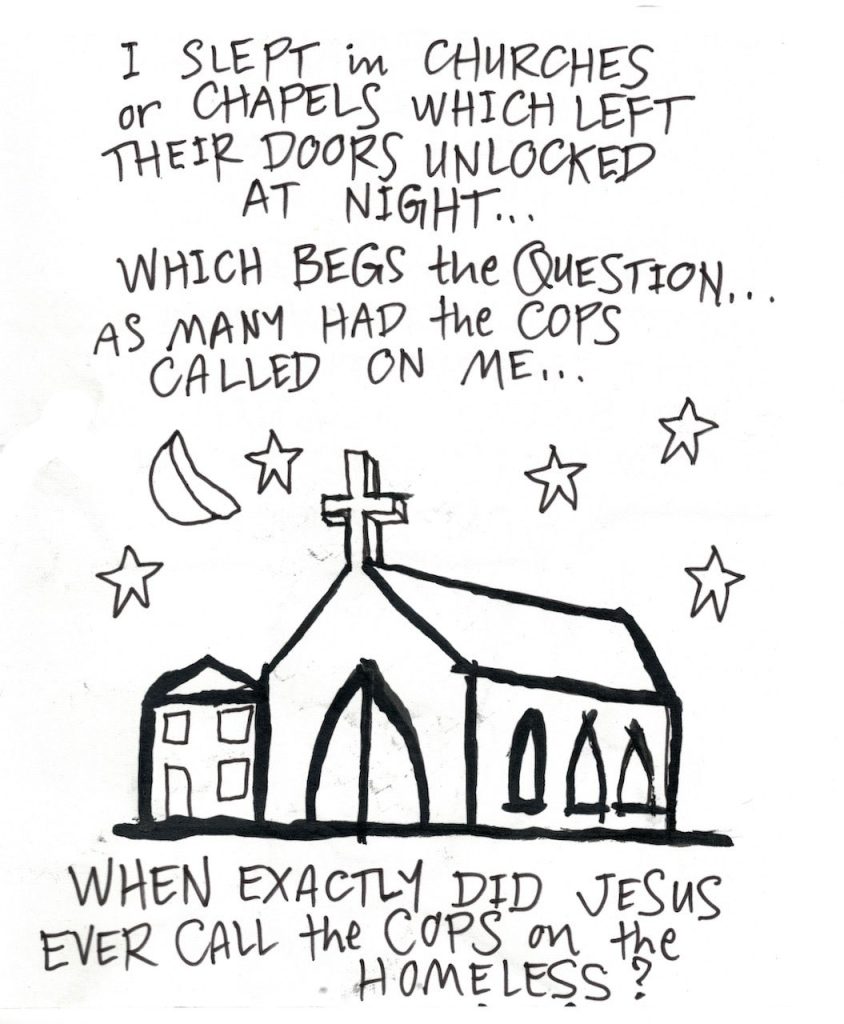 I SLEPT in CHURCHES
or CHAPELS WHICH LEFT
THEIR DOORS UNLOCKED
AT NIGHT...
WHICH BEGS the QUESTION...
AS MANY HAD the COPS
CALLED ON ME...
WHEN EXACTLY DID JESUS
EVER CALL the COPS on the
HOMELESS?